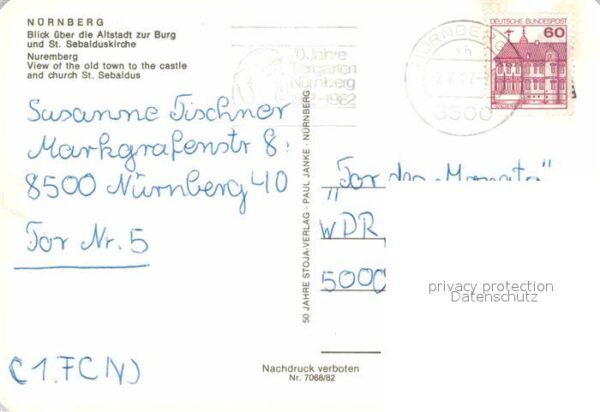 NÜRNBERG
Blick über die Altstadt zur Burg
und St. Sebalduskirche
Nuremberg
View of the old town to the castle
and church St. Sebaldus
Susanne Tischner
Markgrafenstr 8
8500 Nürnberg 40
Tor Nr. 5
(1. FCN)
50 JAHRE STOJA-VERLAG · PAUL JANKE · NÜRNBERG
Nachdruck verboten
Nr. 7068/82
Jahre
Tiergarten
Nürnberg
1982
NÜRNBERG
8500
DEUTSCHE BUNDESPOST
60
"Tor des Monats"
WDR
5000
privacy protection
Datenschutz